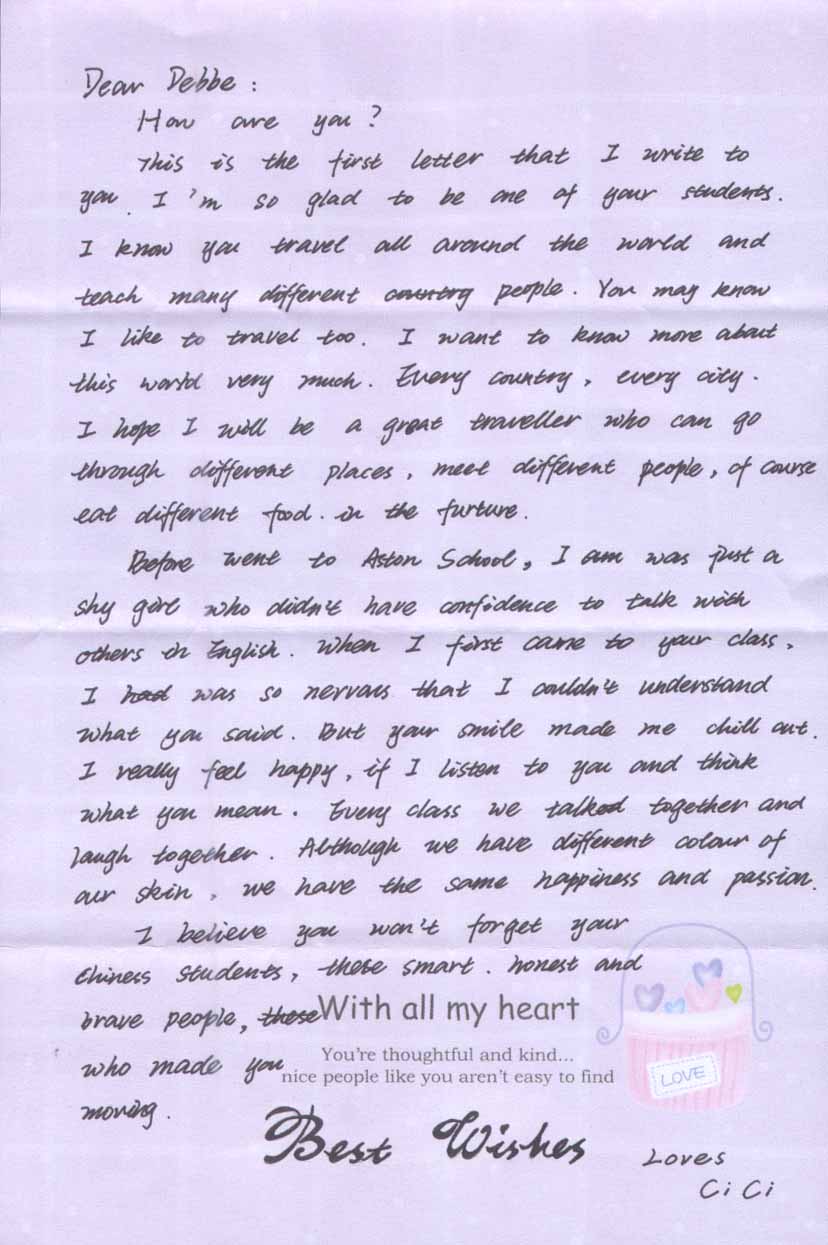 Dear Debbe :
How are you ?
This is the first letter that I write to
you. I'm so glad to be one of your students.
I know you travel all around the world and
teach many different country people. You may know
I like to travel too. I want to know more about
this world very much. Every country, every city.
I hope I will be a great traveller who can go
through different places, meet different people, of course
eat different food. in the furture.
Before went to Aston School, I am was just a
shy girl who didn't have confidence to talk with
others in English. When I first came to your class,
I had was so nervous that I couldn't understand
what you said. But your smile made me chill out.
I really feel happy, if I listen to you and think
what you mean. Every class we talked together and
laugh together. Although we have different colour of
our skin, we have the same happiness and passion.
I believe you won't forget your
Chiness students, these smart. honest and
brave people, these
With all my heart
who made you
You're thoughtful and kind...
nice people like you aren't easy to find
LOVE
moving.
Best Wishes
Loves
Ci Ci